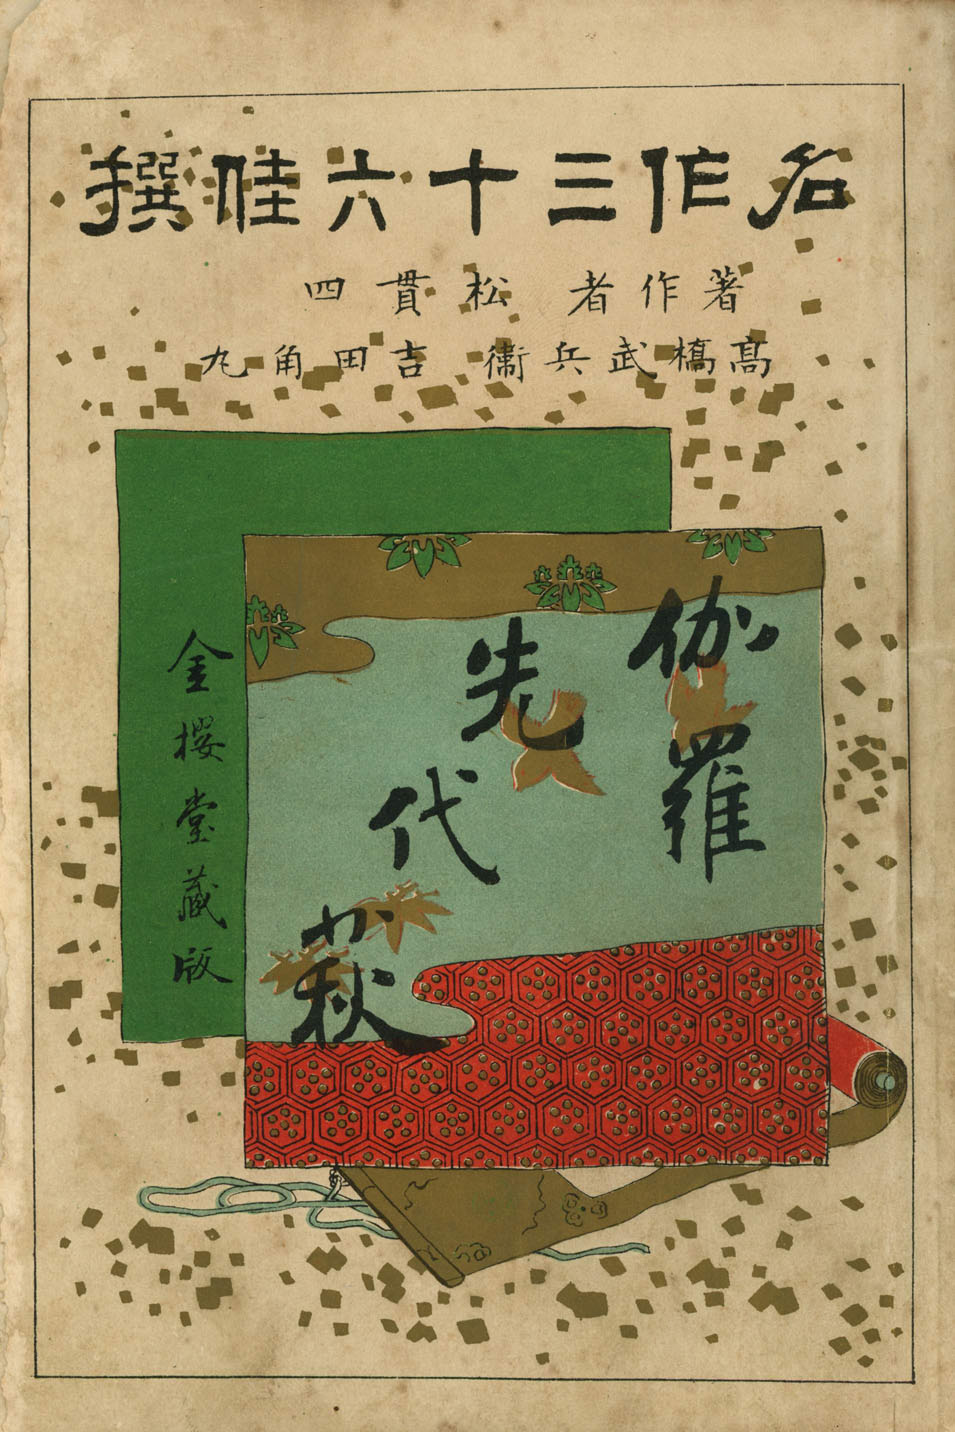 名作三十六佳撰
著作者 松貫四
高橋武兵衞 吉田角丸
伽羅
先代
萩
金櫻堂藏版